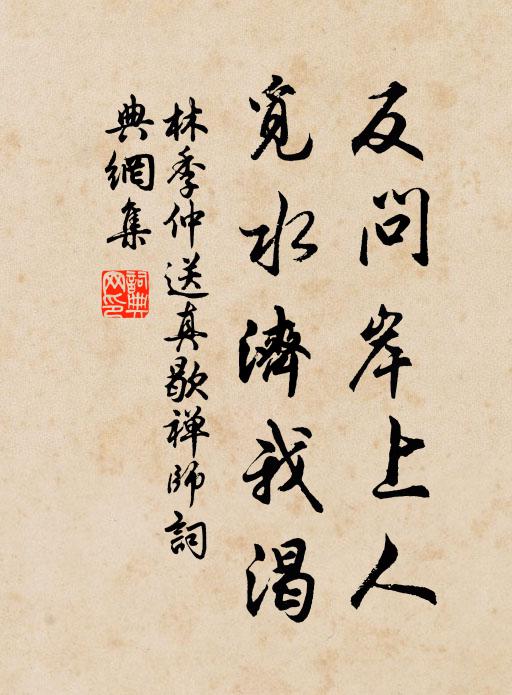 反問岸上人
覓水濟我渴
林季仲送真歇禅師詞
典網集
詞典
网印